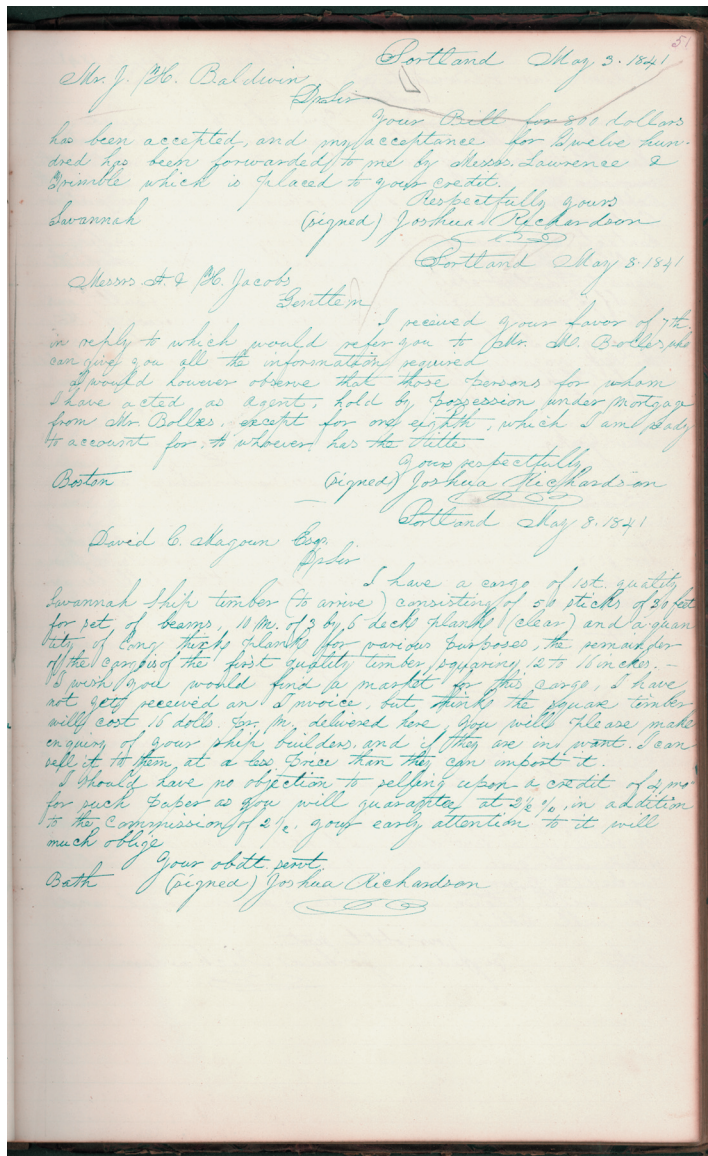 51
Portland May 3. 1841
Mr. J. H. Baldwin
Dr Sir
Your Bill for 800 dollars
has been accepted, and my acceptance for Twelve hun-
dred has been forwarded to me by Messrs. Lawrence &
Trimble which is placed to your credit.
Respectfully yours
Savannah (signed) Joshua Richardson
Portland May 8. 1841
Messrs. A. & H. Jacobs
Gentlem
I received your favor of 7th.
in reply to which would refer you to Mr. M. Bolles, who
can give you all the information required
I would however observe that those persons for whom
I have acted as agent, hold by possession under mortgage
from Mr. Bolles, except for one eighth, which I am ready
to account for to whoever has the tittle
Yours respectfully
Boston (signed) Joshua Richardson
Portland May 8. 1841
David C. Magoun Esq.
Dr Sir
I have a cargo of 1st. quality
Savannah Ship timber (to arrive) consisting of 50 sticks of 30 feet
for set of beams, 10 M. of 3 by 6 deck planks (clear) and a quan
tity of long thick planks for various purposes, the remainder
of the cargo is of the first quality timber, squaring 12 to 16 inches. —
I wish you would find a market for this cargo, I have
not yet received an Invoice, but thinks the square timber
will cost 16 dolls. pr. M. delivered here, you will please make
enquiry of your ship builders, and if they are in want. I can
sell it to them, at a less price than they can import it.
I should have no objection to selling upon a credit of 4 mo
for such paper as you will guarantee at 2½ %, in addition
to the commission of 2 %. your early attention to it will
much oblige
Your obdt. servt.
Bath (signed) Joshua Richardson